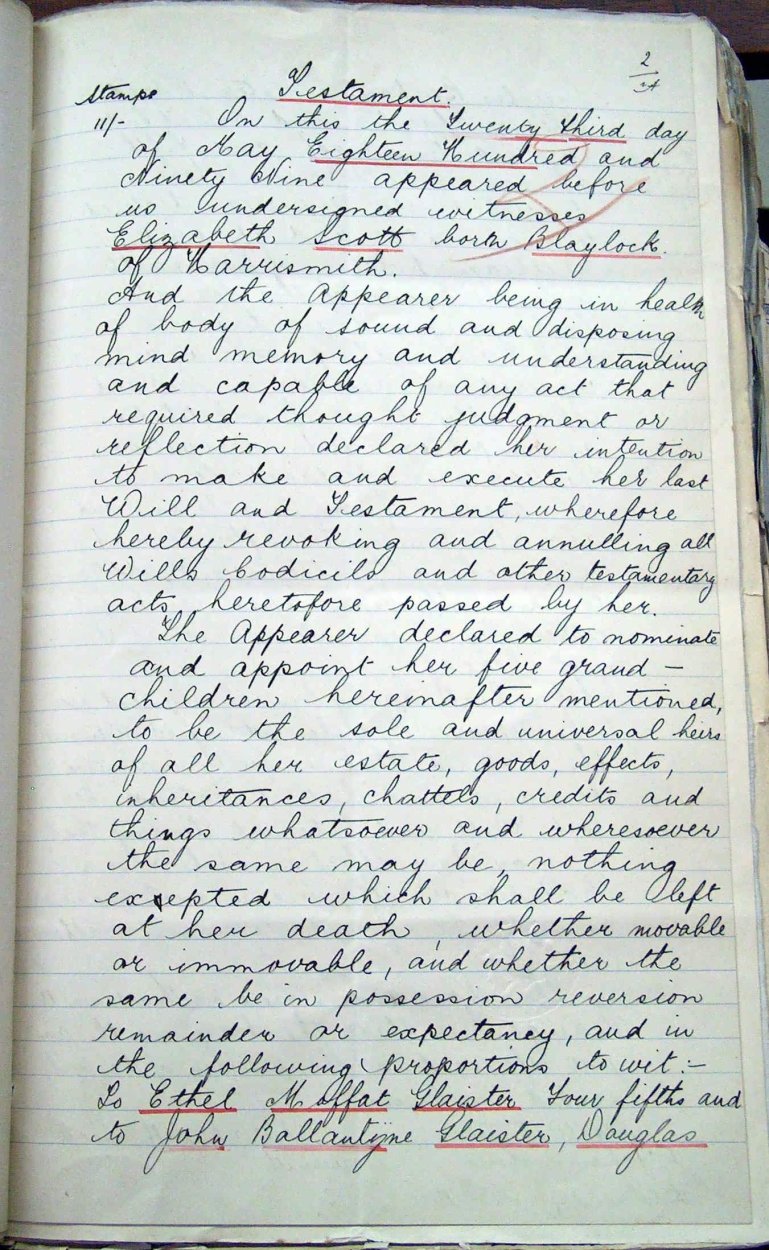 2
Stamps
11/-
Testament.
On this the Twenty third day
of May Eighteen Hundred and
Ninety Nine appeared before
us undersigned witnesses
Elizabeth Scott born Blaylock.
of Harrismith.
And the Appearer being in health
of body of sound and disposing
mind memory and understanding
and capable of any act that
required thought judgment or
reflection declared her intention
to make and execute her last
Will and Testament, wherefore
hereby revoking and annulling all
Wills Codicils and other testamentary
acts heretofore passed by her.
The Appearer declared to nominate
and appoint her five grand -
children hereinafter mentioned,
to be the sole and universal heirs
of all her estate, goods, effects,
inheritances, chattels, credits and
things whatsoever and wheresoever
the same may be, nothing
excepted which shall be left
at her death, whether movable
or immovable, and whether the
same be in possession reversion
remainder or expectancy, and in
the following proportions to wit:-
To Ethel Moffat Glaister Four fifths and
to John Ballantyne Glaister, Douglas